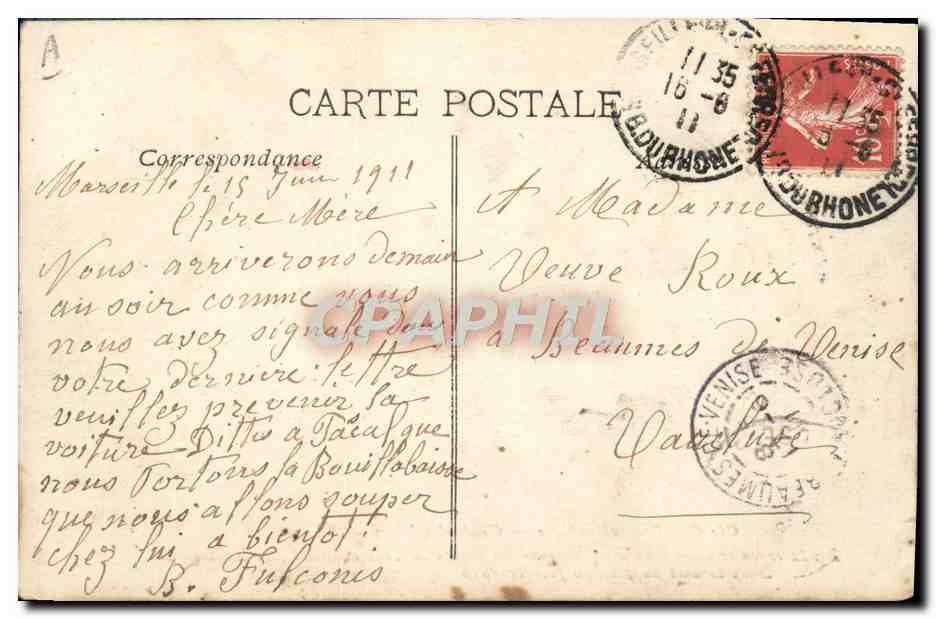 A
CARTE POSTALE
Correspondance
Marseille le 15 Juin 1911
Chère Mère
Nous arriverons demain
au soir comme vous
nous avez signale dans
votre derniere lettre
veuillez prevenir la
voiture Dittes a Pascal que
nous Portons la Bouillabaisse
que nous allons souper
chez lui a bientot
B. Fulconis
A Madame
Veuve Roux
a Beaumes de Venise
Vaucluse
11 35
16 - 6
11
B. DU RHONE
10c
11 35
11
DU RHONE
BEAUMES DE VENISE
CPAPHIL